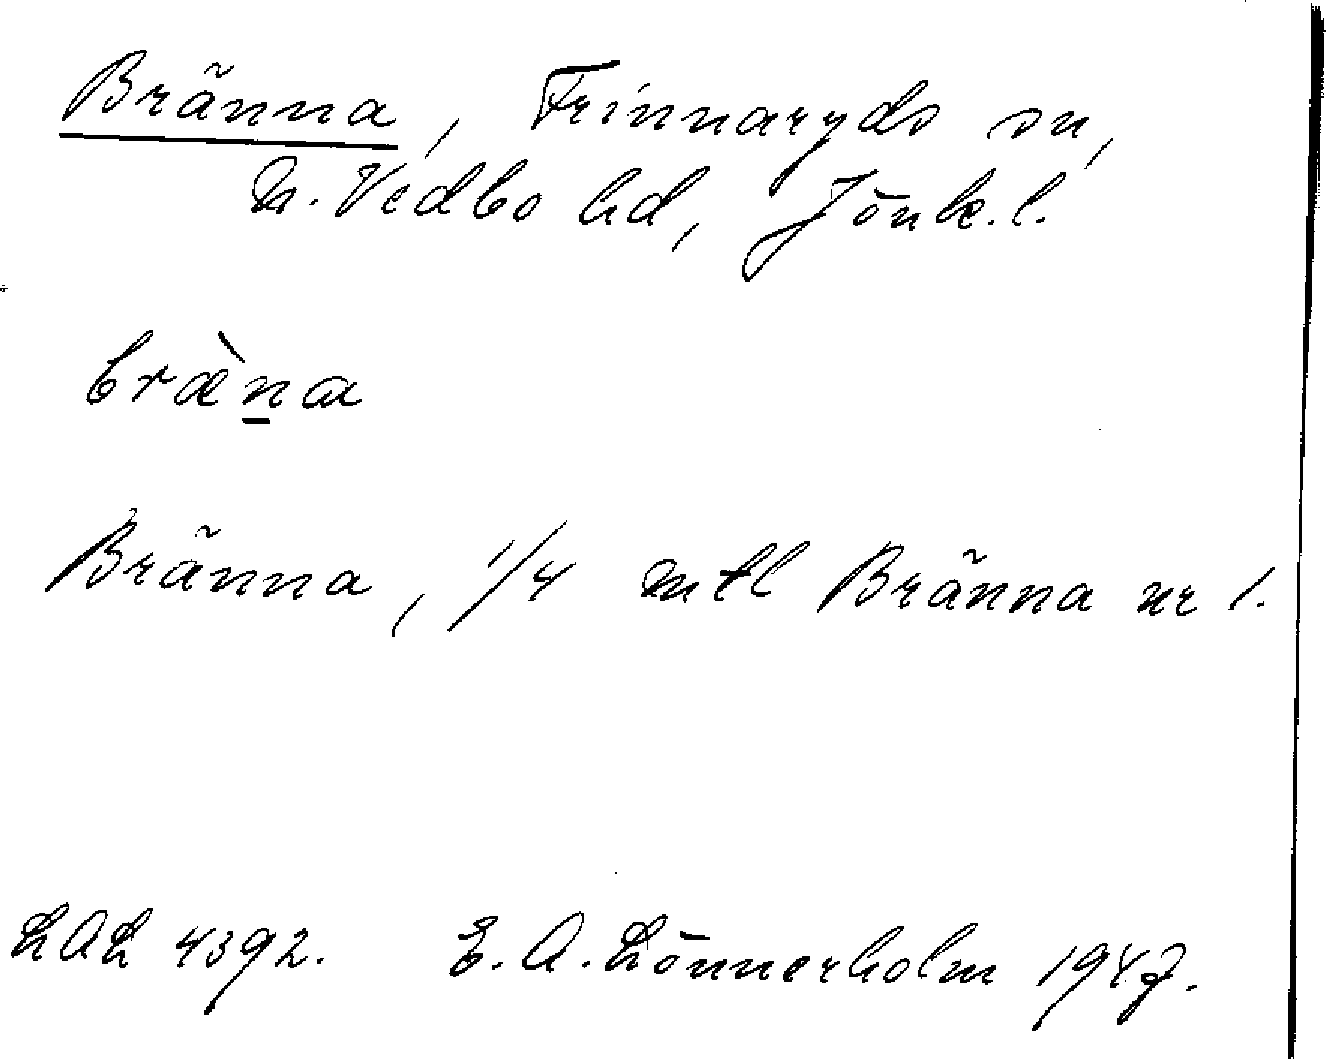 Bränna, Frinnaryds sn,
N. Vedbo hd, Jönk. l.
bræ̀n̲a
Bränna, 1/4 mtl Bränna nr 1.
LAL 4392. E. A. Lönnerholm 1947.